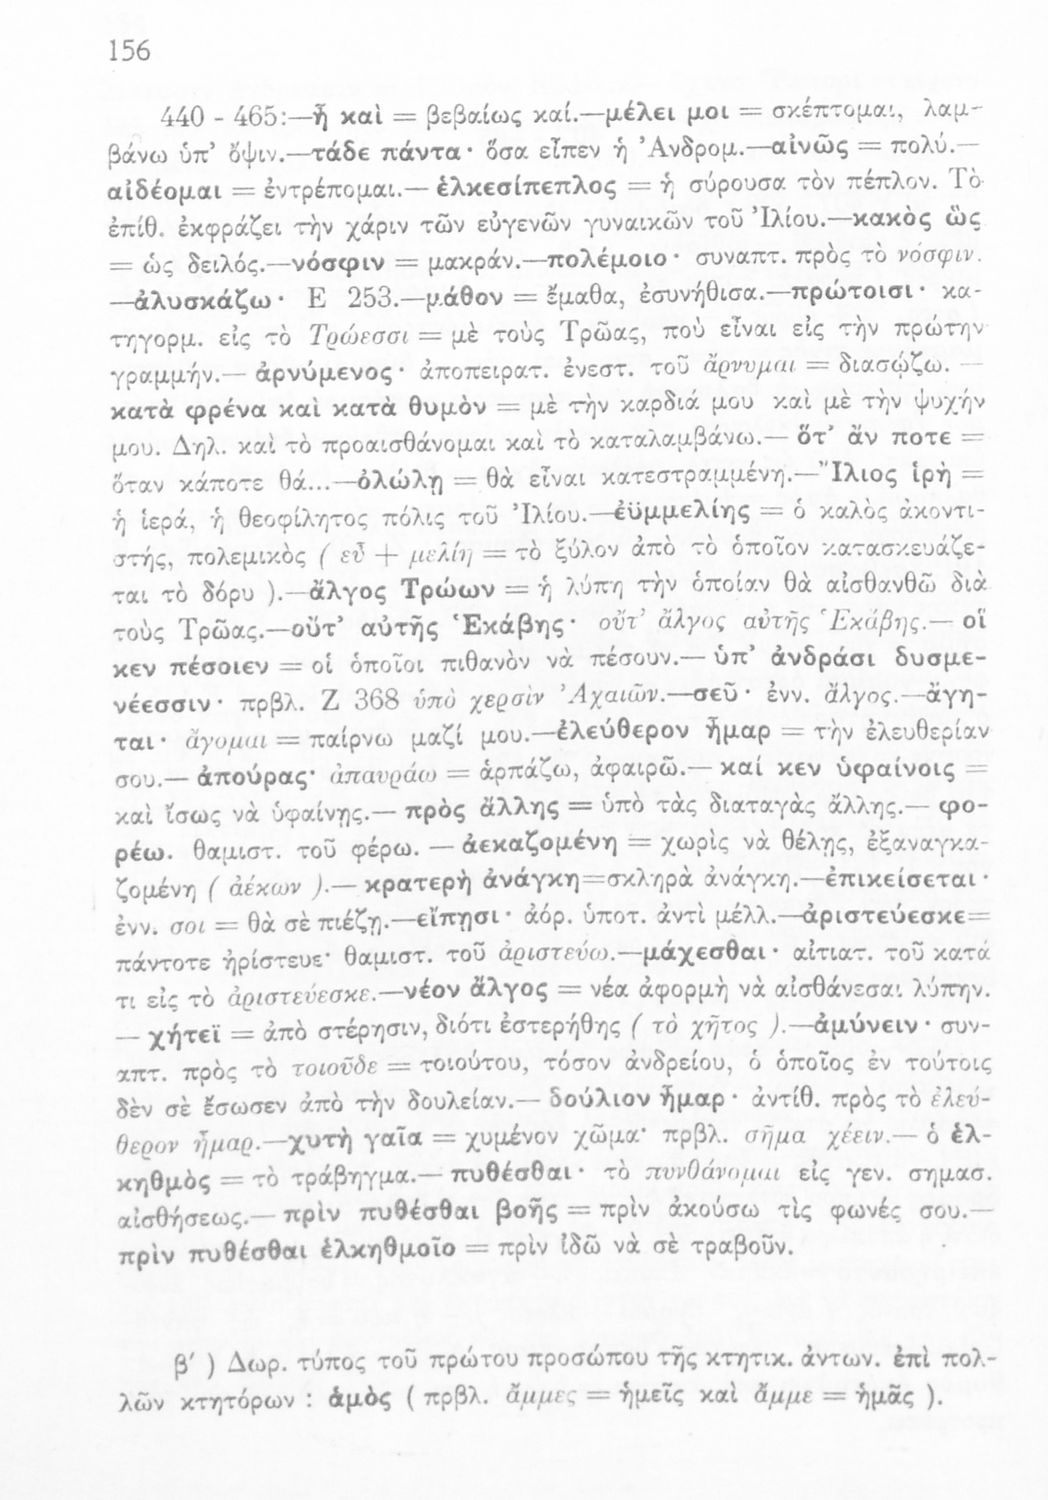 156
440 - 465:—ἦ καὶ = βεβαίως καί.—μέλει μοι = σκέπτομαι, λαμ-
βάνω ὑπ’ ὄψιν.—τάδε πάντα· ὅσα εἶπεν ἡ ’Ανδρομ.—αἰνῶς = πολύ.—
αἰδέομαι = ἐντρέπομαι.— ἑλκεσίπεπλος = ἡ σύρουσα τὸν πέπλον. Τὸ
ἐπίθ. ἐκφράζει τὴν χάριν τῶν εὐγενῶν γυναικῶν τοῦ ’Ιλίου.—κακὸς ὣς
= ὡς δειλός.—νόσφιν = μακράν.—πολέμοιο· συναπτ. πρὸς τὸ νόσφιν.
—ἀλυσκάζω· Ε 253.—μάθον = ἔμαθα, ἐσυνήθισα.—πρώτοισι· κα-
τηγορμ. εἰς τὸ Τρώεσσι = μὲ τοὺς Τρῶας, ποὺ εἶναι εἰς τὴν πρώτην
γραμμήν.— ἀρνύμενος· ἀποπειρατ. ἐνεστ. τοῦ ἄρνυμαι = διασῴζω. —
κατὰ φρένα καὶ κατὰ θυμὸν = μὲ τὴν καρδιά μου καὶ μὲ τὴν ψυχήν
μου. Δηλ. καὶ τὸ προαισθάνομαι καὶ τὸ καταλαμβάνω.— ὅτ’ ἄν ποτε =
ὅταν κάποτε θά...—ὀλώλῃ = θὰ εἶναι κατεστραμμένη.—Ἴλιος ἱρὴ =
ἡ ἱερά, ἡ θεοφίλητος πόλις τοῦ ’Ιλίου.—ἐϋμμελίης = ὁ καλὸς ἀκοντι-
στής, πολεμικὸς ( εὖ + μελίη = τὸ ξύλον ἀπὸ τὸ ὁποῖον κατασκευάζε-
ται τὸ δόρυ ).—ἄλγος Τρώων = ἡ λύπη τὴν ὁποίαν θὰ αἰσθανθῶ διὰ
τοὺς Τρῶας.—οὔτ’ αὐτῆς Ἑκάβης· οὔτ’ ἄλγος αὐτῆς Ἑκάβης.— οἵ
κεν πέσοιεν = οἱ ὁποῖοι πιθανὸν νὰ πέσουν.— ὑπ’ ἀνδράσι δυσμε-
νέεσσιν· πρβλ. Ζ 368 ὑπὸ χερσὶν ’Αχαιῶν.—σεῦ· ἐνν. ἄλγος.—ἄγη-
ται· ἄγομαι = παίρνω μαζί μου.—ἐλεύθερον ἦμαρ = τὴν ἐλευθερίαν
σου.— ἀπούρας· ἀπαυράω = ἁρπάζω, ἀφαιρῶ.— καί κεν ὑφαίνοις =
καὶ ἴσως νὰ ὑφαίνῃς.— πρὸς ἄλλης = ὑπὸ τὰς διαταγὰς ἄλλης.— φο-
ρέω. θαμιστ. τοῦ φέρω. — ἀεκαζομένη = χωρὶς νὰ θέλῃς, ἐξαναγκα-
ζομένη ( ἀέκων ).— κρατερὴ ἀνάγκη=σκληρὰ ἀνάγκη.—ἐπικείσεται·
ἐνν. σοι = θὰ σὲ πιέζῃ.—εἴπησι· ἀόρ. ὑποτ. ἀντὶ μέλλ.—ἀριστεύεσκε=
πάντοτε ἠρίστευε· θαμιστ. τοῦ ἀριστεύω.—μάχεσθαι· αἰτιατ. τοῦ κατά
τι εἰς τὸ ἀριστεύεσκε.—νέον ἄλγος = νέα ἀφορμὴ νὰ αἰσθάνεσαι λύπην.
— χήτεϊ = ἀπὸ στέρησιν, διότι ἐστερήθης ( τὸ χῆτος ).—ἀμύνειν· συν-
απτ. πρὸς τὸ τοιοῦδε = τοιούτου, τόσον ἀνδρείου, ὁ ὁποῖος ἐν τούτοις
δὲν σὲ ἔσωσεν ἀπὸ τὴν δουλείαν.— δούλιον ἦμαρ· ἀντίθ. πρὸς τὸ ἐλεύ-
θερον ἦμαρ.—χυτὴ γαῖα = χυμένον χῶμα· πρβλ. σῆμα χέειν.— ὁ ἑλ-
κηθμὸς = τὸ τράβηγμα.— πυθέσθαι· τὸ πυνθάνομαι εἰς γεν. σημασ.
αἰσθήσεως.— πρὶν πυθέσθαι βοῆς = πρὶν ἀκούσω τὶς φωνές σου.—
πρὶν πυθέσθαι ἑλκηθμοῖο = πρὶν ἰδῶ νὰ σὲ τραβοῦν.
β’ ) Δωρ. τύπος τοῦ πρώτου προσώπου τῆς κτητικ. ἀντων. ἐπὶ πολ-
λῶν κτητόρων : ἁμὸς ( πρβλ. ἄμμες = ἡμεῖς καὶ ἄμμε = ἡμᾶς ).